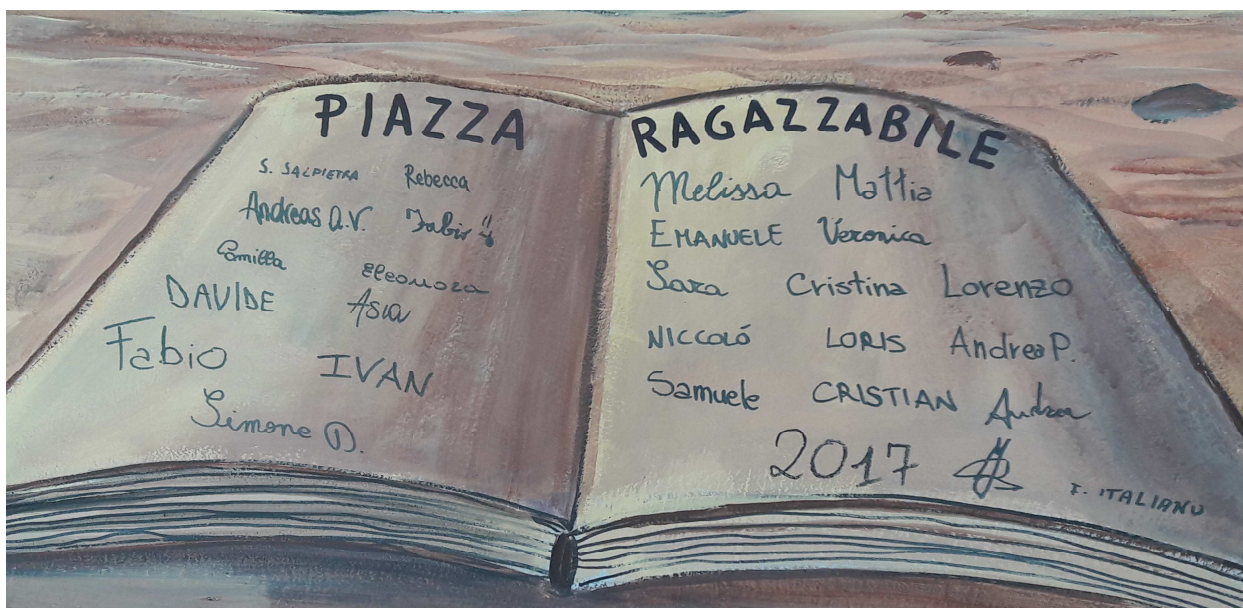 PIAZZA
S. SALPIETRA Rebecca
Andreas A.V. Fabir
Camilla Eleonora
DAVIDE Asia
Fabio IVAN
Simone D.
RAGAZZABILE
Melissa Mattia
EMANUELE Veronica
Sara Cristina Lorenzo
NICCOLÓ LORIS Andrea P.
Samuele CRISTIAN Andrea
2017
F. ITALIANO